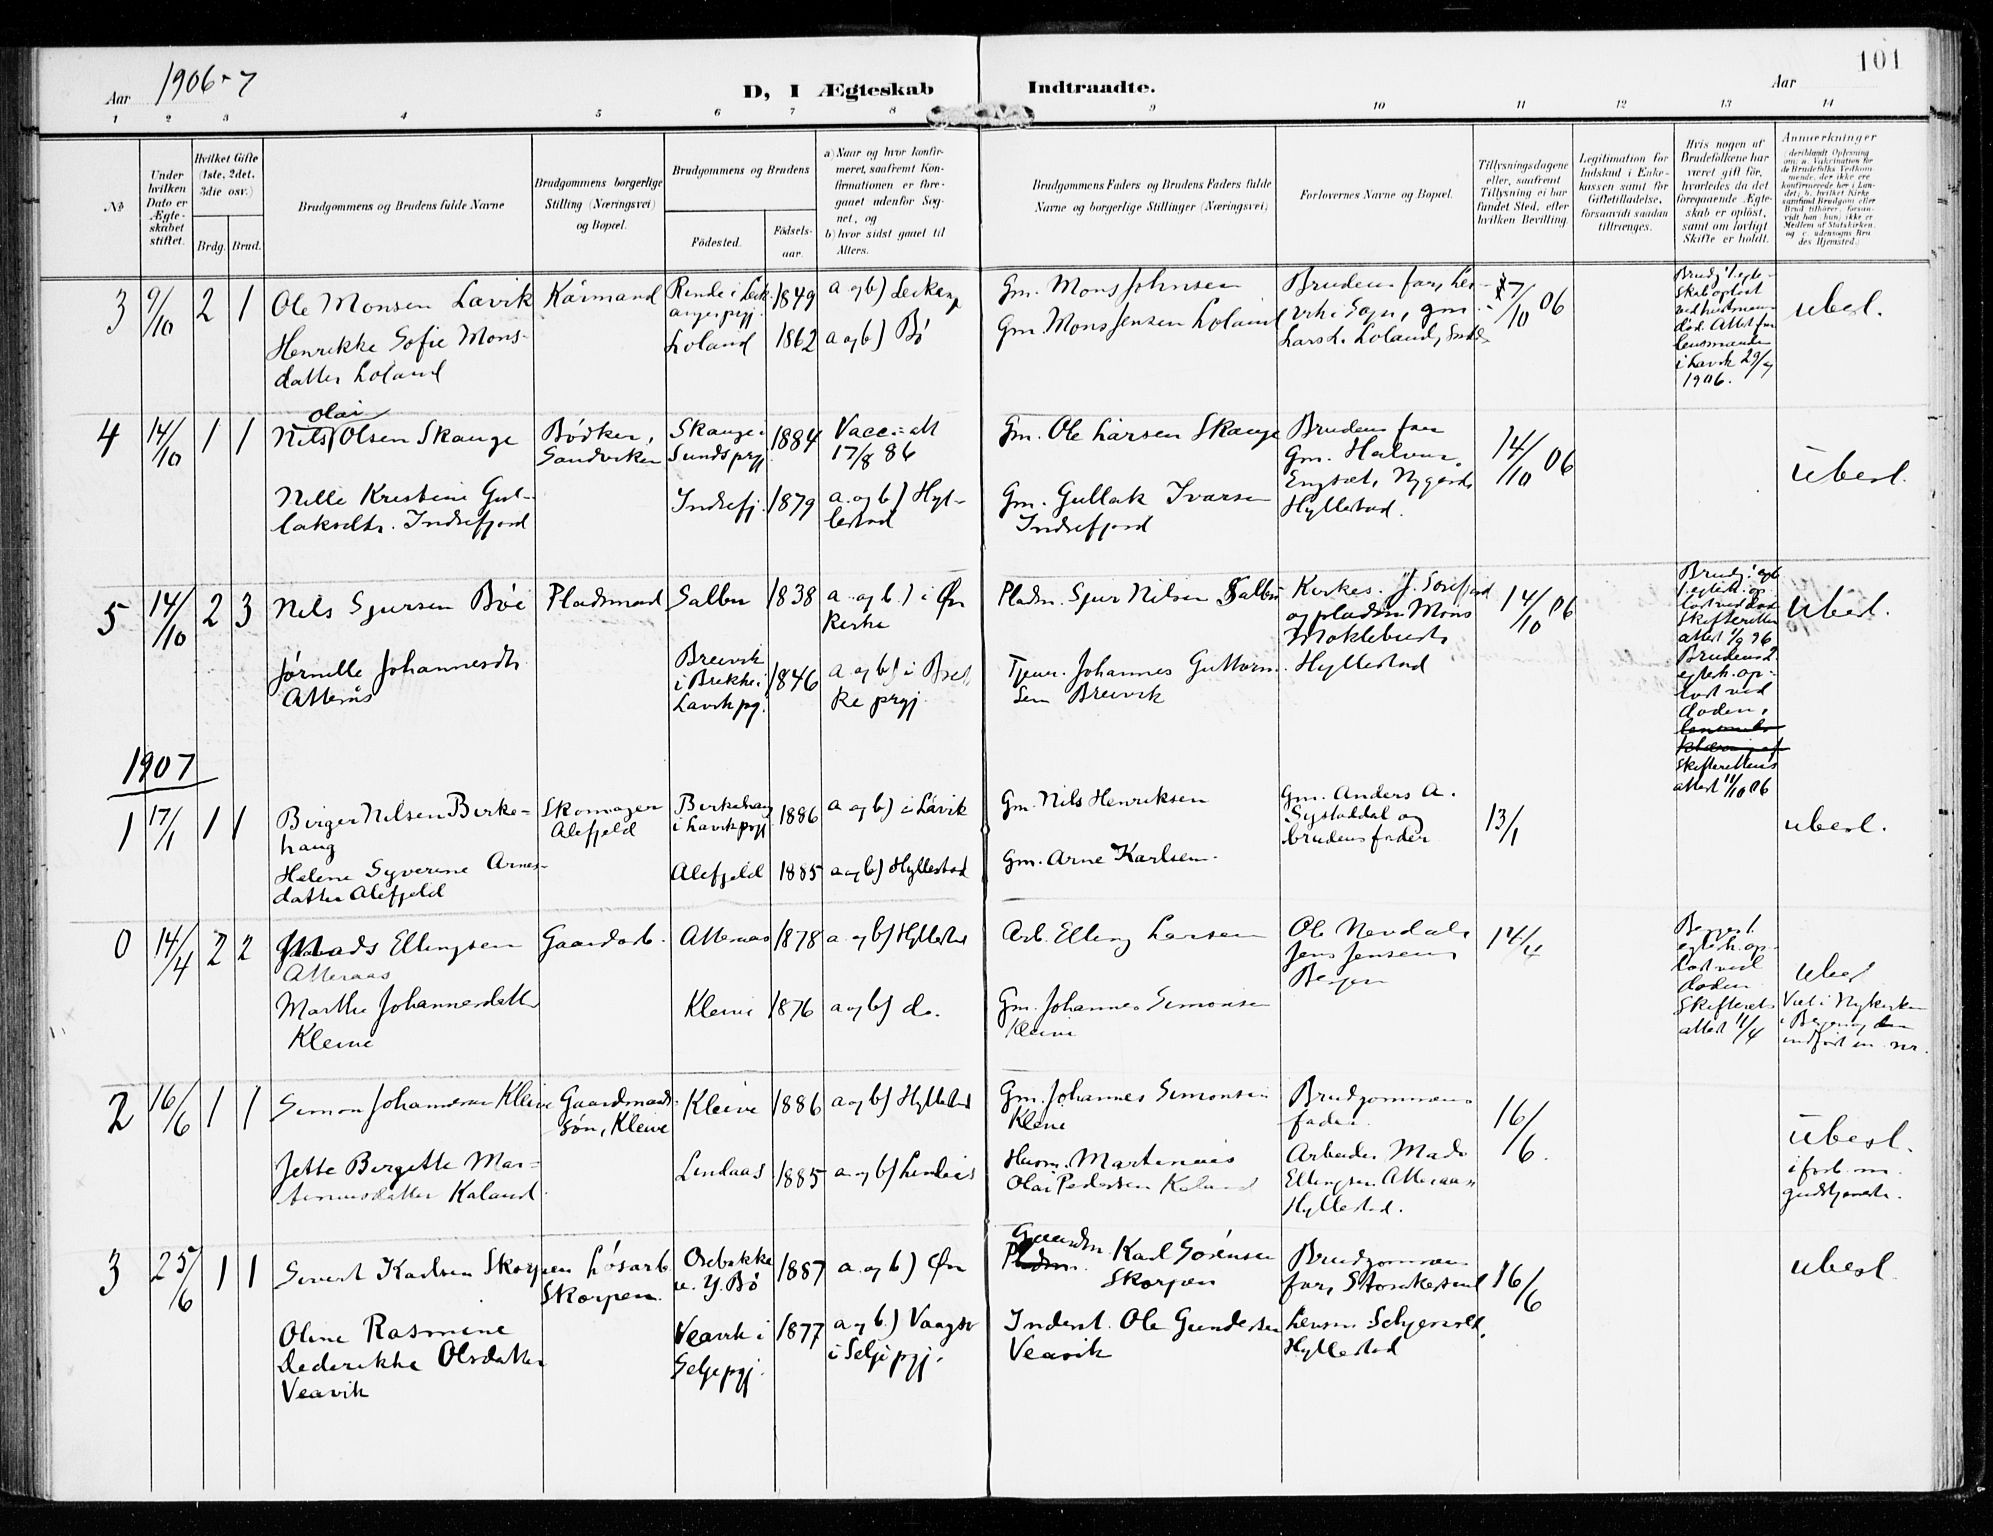 101
Aar 1906-7
D, I Ægteskab Indtraadte.
Aar
1 2 3 4 5 6 7 8 9 10 11 12 13 14
No
Under hvilken Dato er Ægteskabet stiftet.
Hvilket Gifte (1ste, 2det, 3die osv.)
Brdg. Brud.
Brudgommens og Brudens fulde Navne
Brudgommens borgerlige Stilling (Næringsvei) og Bopæl.
Brudgommens og Brudens
Födested.
Födselsaar.
a) Naar og hvor konfirmeret, saafremt Konfirmationen er foregaaet udenfor Sognet, og
b) hvor sidst gaaet til Alters.
Brudgommens Faders og Brudens Faders fulde Navne og borgerlige Stillinger (Næringsvei)
Forlovernes Navne og Bopæl.
Tillysningsdagene eller, saafremt Tillysning ei har fundet Sted, efter hvilken Bevilling.
Legitimation for Indskud i Enkekassen samt for Giftetilladelse, forsaavidt saadan tiltrænges.
Hvis nogen af Brudefolkene har været gift før, hvorledes da det foregaaende Ægteskab er opløst, samt om lovligt Skifte er holdt.
Anmerkninger
3 9/10 2 1
Ole Monsen Lavik
Kårmand
Rinde i Leikangerprgj. 1849
a og b)
Gm. Mons Johnsen
Brudens far,
gm. Lars L. Loland,
7/10 06
Brudg. 1 egteskab opløst ved hustruens død. Attest fra lensmanden i Lavik 29/9 1906.
ubesl.
Henrikke Sofie Monsdatter Loland
Loland 1862
a og b) Bø
Gm. Mons Jensen Loland
4 14/10 1 1
Nils Olai Olsen Skauge
Bödker, Sandviken
Skauge i Sunds prgj 1884
Vacc. att 17/8 86
Gm. Ole Larsen Skauge
Brudens far
Gm. Halvor Engsæt, Nygård, Hyllestad.
14/10 06
ubesl.
Nille Kristine Gullaksdtr. Indrefjord
Indrefj. 1879
a. og b) Hyllestad
Gm. Gullak Ivarsen Indrefjord
5 14/10 2 3
Nils Sjursen Böe
Pladsmand
Salbu 1838
a. og b.) i Øn Kirke
Pladsm. Sjur Nilsen Salbu
Kirkes. J. Sörefjord og pladsm Mons Moklebust, Hyllestad
14/10 06
Brudg. 1 egtsk. opløst ved død skifteretten attest 1/9 96
Brudens 2 egtesk. opløst ved døden, skifterettens attest 11/10 06
ubesl.
Jörnille Johannesdtr Atterås
Breivik i Brekke i Lavik pg. 1846
a og b) i Brekke prgj.
Tjener. Johannes Guttormsen Breivik
1907
1 17/1 1 1
Birger Nilsen Birkehaug
Skomager Alefjeld
Birkehaug i Lavik prgj 1886
a og b) i Lavik
Gm. Nils Henriksen
Gm. Anders A. Systaddal og brudens fader
13/1
ubesl.
Helene Syverine Arnesdatter Alefjeld
Alefjeld 1885
a og b) Hyllestad
Gm. Arne Karlsen.
0 14/4 2 2
Mads Ellingsen Atteraas
Gaardarb.
Atteraas 1878
a og b) Hyllestad
Arb. Elling Larsen
Ole Nevdal, Jens Jensen, Bergen
14/4
Begges 1. egtesk. opløst ved døden Skifterets attest 11/4
ubesl
Viet i Nykirken i Bergen,
Marthe Johannesdatter Kleive
Kleive 1876
a og b) do.
Gm. Johannes Simonsen Kleive
2 16/6 1 1
Simon Johannesen Kleive
Gaardmandssön, Kleive
Kleive 1886
a og b) Hyllestad
Gm. Johannes Simonsen Kleive
Brudgommens fader.
Arbeider Mads Ellingsen Atteraas Hyllestad.
16/6.
ubesl.
i forb. m. gudstjeneste.
Jette Birgitte Martinusdatter Kaland
Lindaas 1885
a. og b) Lindaas
Husm. Martinus Olai Pedersen Kaland
3 25/6 1 1
Sivert Karlsen Skorpen
Lösarb Skorpen.
Osebakke 1887
a. og b) Øn
Gaardm. Karl Sörensen Skorpen
Brudgommens far,
Lensm. Hyllestad
16/6
ubesl.
Oline Rasmine Dederikke Olsdatter Veavik
Veavik i Selje pgj. 1877
a og b) Vaagsø i Selje pgj.
Inderst. Ole Gundersen Veavik